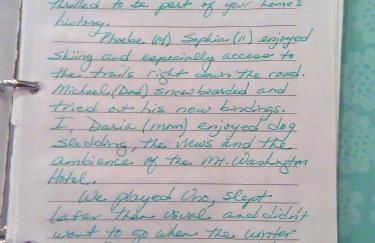 thrilled to be part of your home's
history.
Phoebe (14) Sophia (11) enjoyed
skiing and especially access to
the trails right down the road.
Michael (Dad) snowboarded and
tried out his new bindings.
I, Daria (mom) enjoyed dog
sledding, the views and the
ambience of the Mt. Washington
Hotel.
We played Uno, slept
later than usual and didn't
want to go when the winter